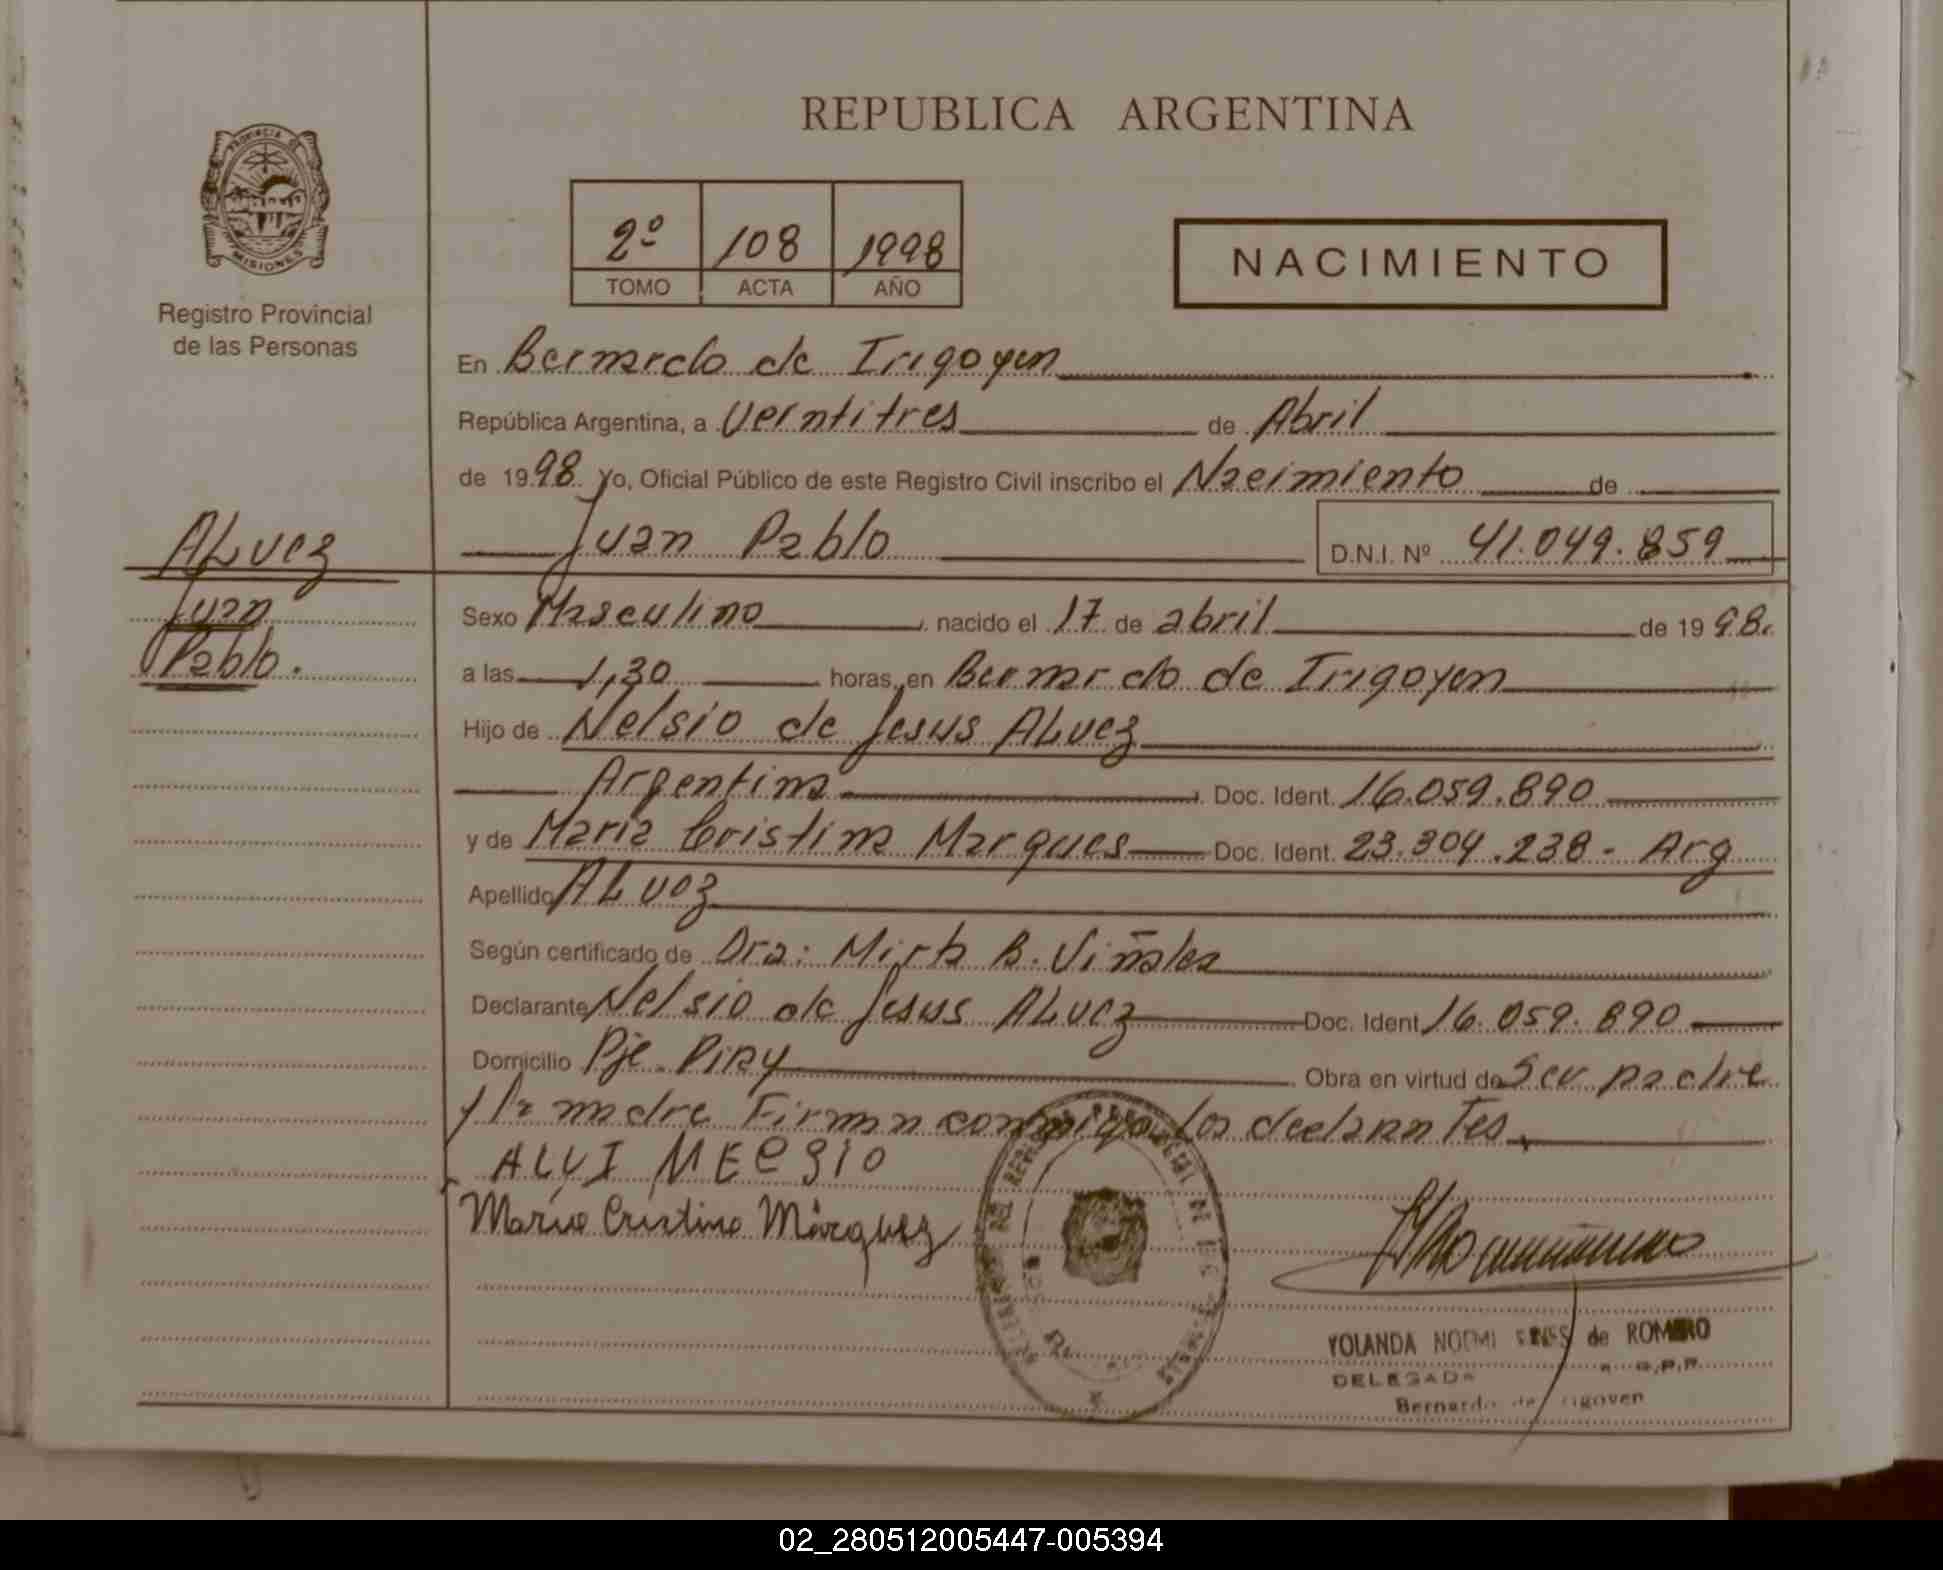 REPUBLICA ARGENTINA
PROVINCIA DE
MISIONES
Registro Provincial
de las Personas
2º 108 1998
TOMO ACTA AÑO
NACIMIENTO
En Bernardo de Irigoyen
República Argentina, a veintitres de Abril
de 1998. Yo, Oficial Público de este Registro Civil inscribo el Nacimiento de
Juan Pablo D.N.I. Nº 41.049.859
ALvez
Juan
Pablo.
Sexo Masculino nacido el 17 de abril de 1998.
a las 1,30 horas, en Bernardo de Irigoyen
Hijo de Nelsio de Jesus ALvez
Argentina Doc. Ident. 16.059.890
y de Maria Cristina Marques Doc. Ident. 23.304.238 - Arg
Apellido ALvez
Según certificado de Dra: Mirta B. Viñales
Declarante Nelsio de Jesus ALvez Doc. Ident. 16.059.890
Domicilio Pje. Piray Obra en virtud de Ser padre
y la madre Firman conmigo los declarantes.
Maria Cristina Márquez
YOLANDA NOEMI de ROMERO
DELEGADA R.P.P.
Bernardo de Irigoyen
02_280512005447-005394